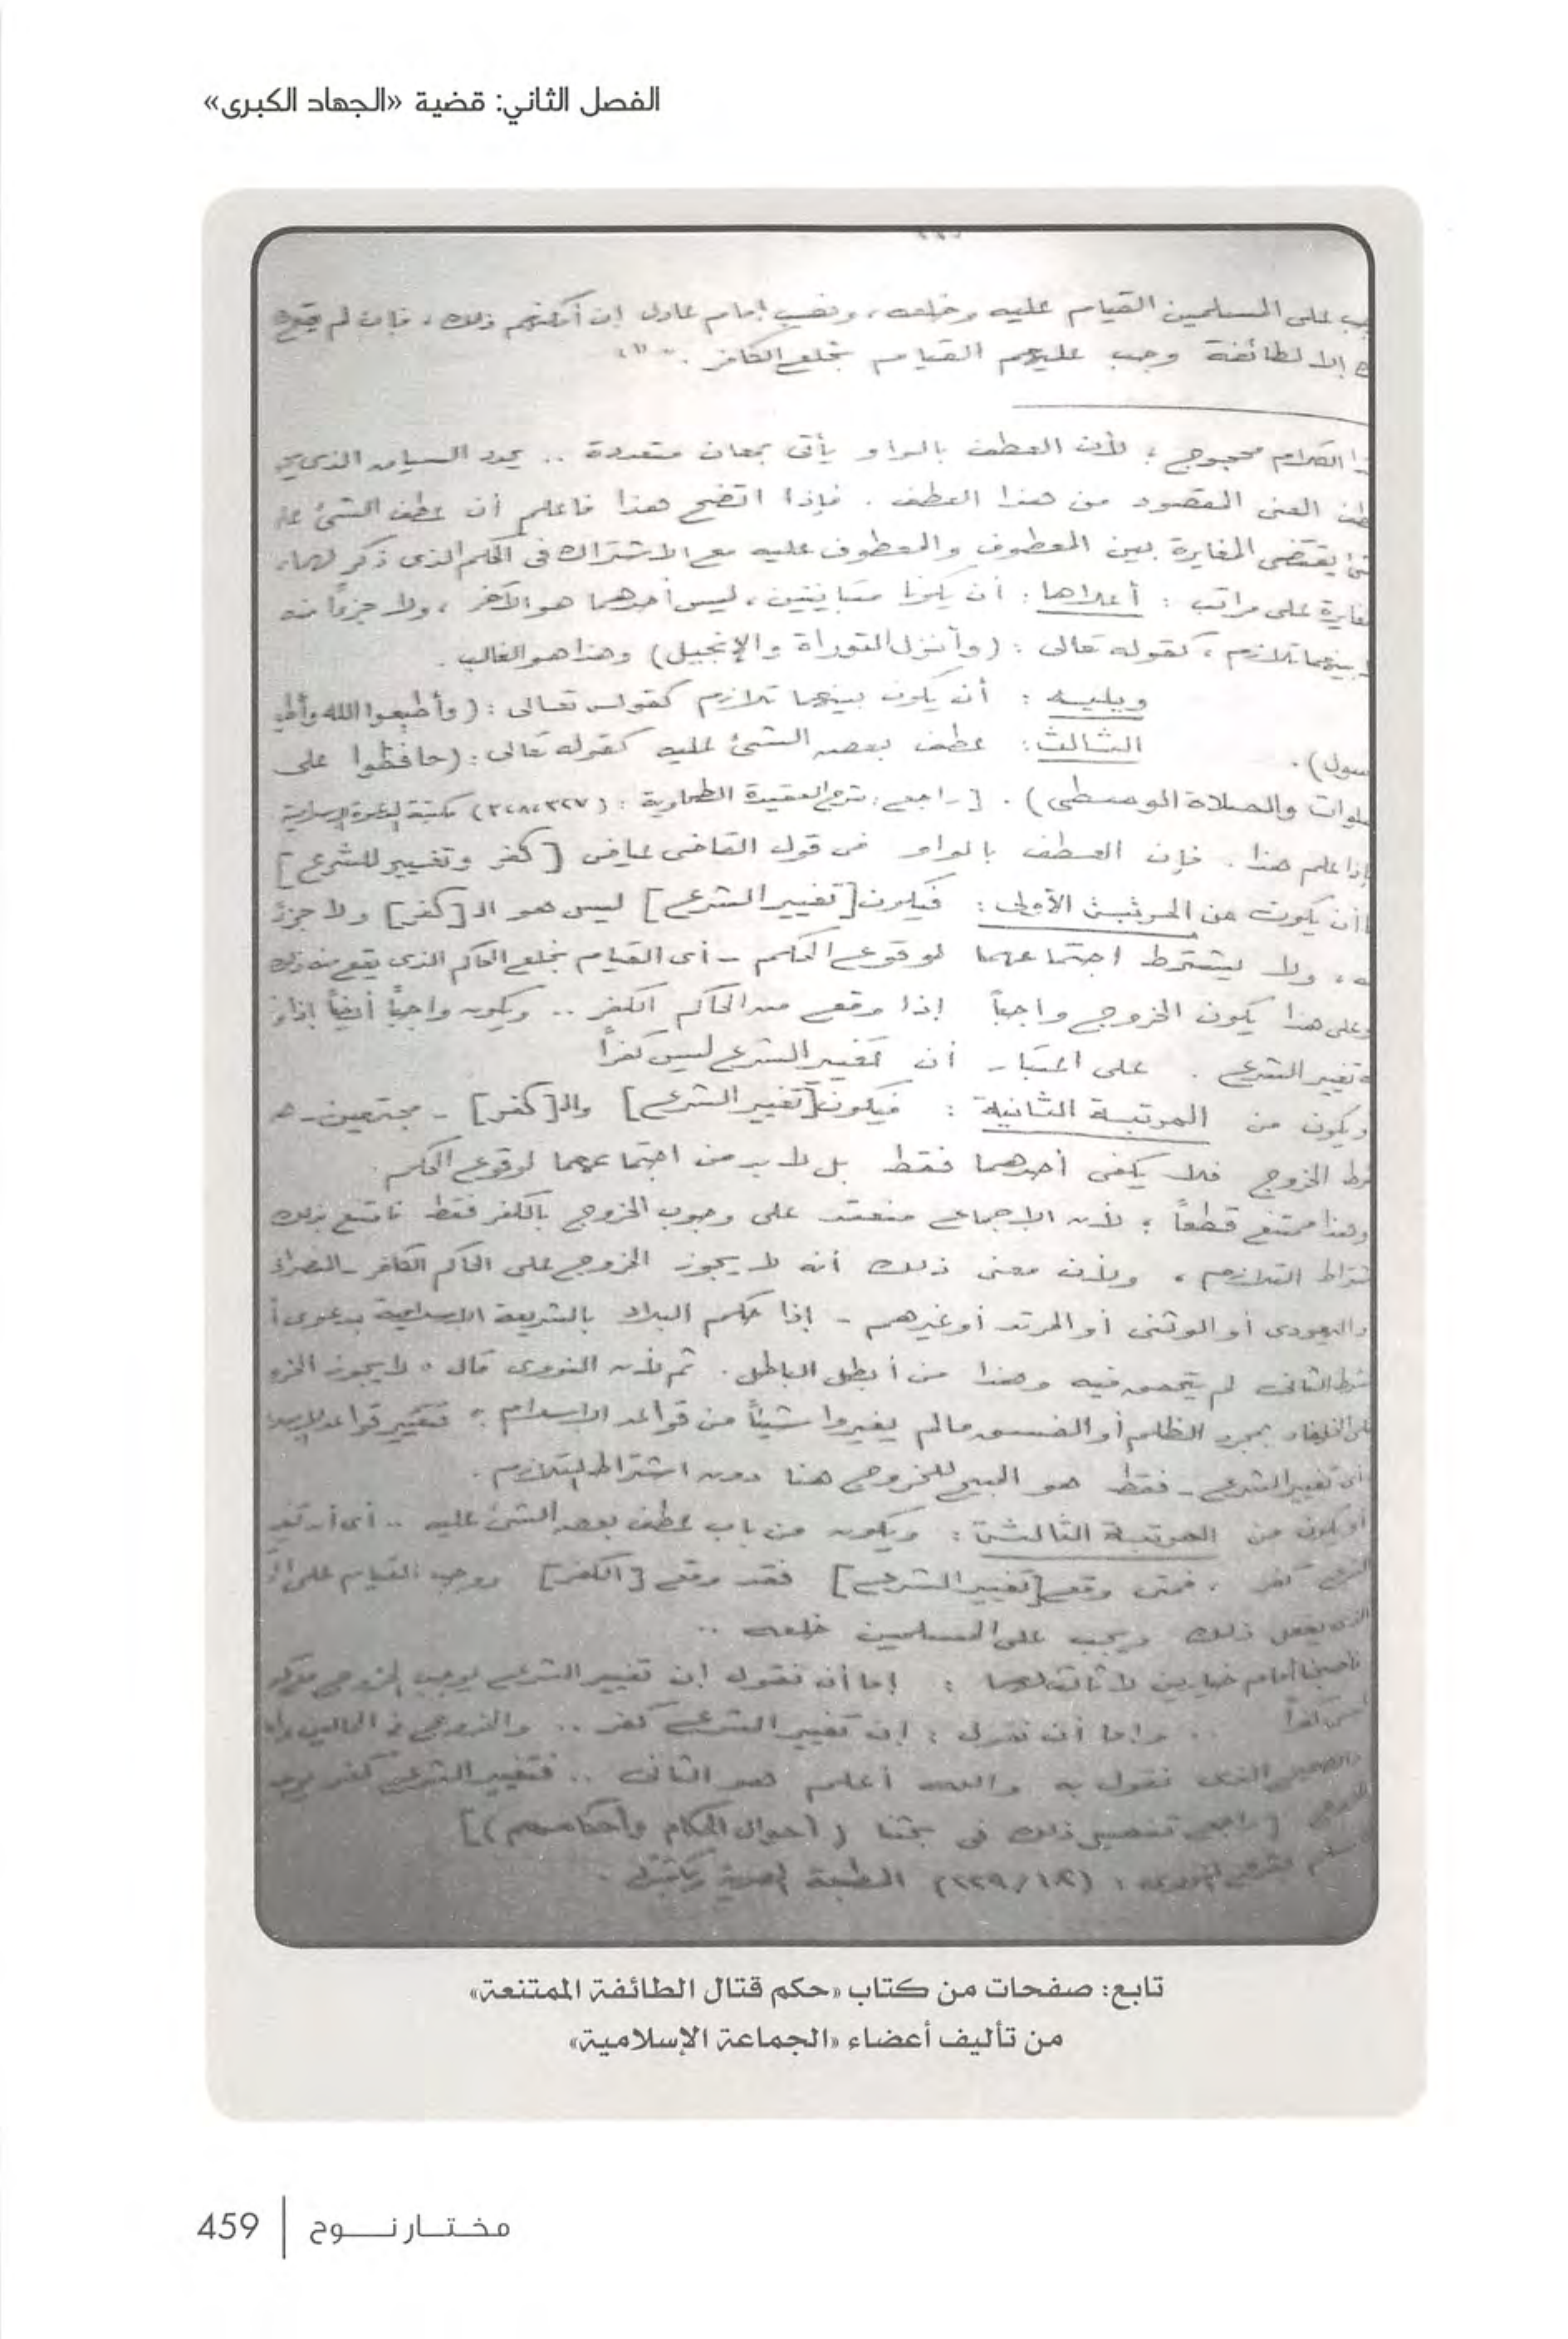 الفصل الثاني: قضية «الجهاد الكبرى»
على المسلمين القيام عليه وخلعه، ونصب إمام عادل إن أمكنهم ذلك، فإن لم يقع
إلا لطائفة وجب عليهم القيام بخلع الكافر.
الكلام محجوج؛ لأن العطف بالواو يأتى بمعان متعددة .. يحدد السياق الذى
المعنى المقصود من هذا العطف. فإذا اتضح هذا فاعلم أن عطف الشئ
يقتضى المغايرة بين المعطوف والمعطوف عليه مع الاشتراك فى الحكم الذى ذكر لهما،
على مراتب: أعلاها: أن يكونا متباينين، ليس أحدهما هو الآخر، ولا جزءًا منه
بينهما تلازم، كقوله تعالى: (وأنزل التوراة والإنجيل) وهذا هو الغالب.
ويليه: أن يكون بينهما تلازم كقوله تعالى: (وأطيعوا الله
سول).
الثالث: عطف بعض الشئ عليه كقوله تعالى: (حافظوا على
لوات والصلاة الوسطى). [راجع: شرح العقيدة الطحاوية:
إذا علم هذا. فإن العطف بالواو فى قول القاضى عياض [كفر وتغيير للشرع]
أن يكون من المرتبة الأولى: فيكون [تغيير الشرع] ليس هو الـ [كفر] ولا جزء
ه، ولا يشترط اجتماعهما لوقوع الحكم - أى القيام بخلع الحاكم الذى يقع منه ذلك
وعلى هذا يكون الخروج واجباً إذا وقع من الحاكم الكفر .. ويكون واجباً أيضاً إذا
تغيير الشرع. على اعتبار أن تغيير الشرع ليس كفراً
ويكون من المرتبة الثانية: فيكون [تغيير الشرع] والـ [كفر] - مجتمعين -
رط الخروج فلا يكفى أحدهما فقط بل لابد من اجتماعهما لوقوع الحكم.
وهذا ممتنع قطعاً؛ لأن الإجماع منعقد على وجوب الخروج بالكفر فقط فامتنع بذلك
تراط التلازم، ولأن معنى ذلك أنه لا يجوز الخروج على الحاكم الكافر -
واليهودى أو الوثنى أو المرتد أو غيرهم - إذا حكم البلاد بالشريعة الإسلامية بدعوى
الثانى لم يتحقق فيه وهذا من أبطل الباطل. ثم لأن النووى قال «لا يجوز
على الخلفاء بمجرد الظلم أو الفسق مالم يغيروا شيئاً من قواعد الإسلام» فتغيير قواعد
أى تغيير الشرع - فقط هو المبيح للخروج هنا دون اشتراط التلازم.
أو يكون من المرتبة الثالثة: ويكون من باب عطف بعض الشئ عليه .. أى أن
الشرع كفر، فمتى وقع [تغيير الشرع] فقد وقع [الكفر] ووجب القيام على
الذى يفعل ذلك ويجب على المسلمين خلعه ..
أمام خيارين لا ثالث لهما: إما أن نقول إن تغيير الشرع يوجب الخروج
ليس كفراً .. وإما أن نقول: إن تغيير الشرع كفر .. والخروج فى الحالين
والصحيح الذى نقول به والله أعلم هو الثانى .. فتغيير الشرع كفر
[راجع تفصيل ذلك فى بحثنا (أحوال الحكام وأحكامهم)]
النووى: (١٢/٢٢٩) الطبعة المصرية
تابع: صفحات من كتاب «حكم قتال الطائفة الممتنعة»
من تأليف أعضاء «الجماعة الإسلامية»
مختار نوح | 459